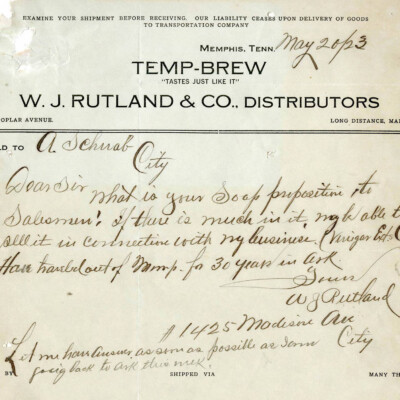 EXAMINE YOUR SHIPMENT BEFORE RECEIVING. OUR LIABILITY CEASES UPON DELIVERY OF GOODS
TO TRANSPORTATION COMPANY
MEMPHIS, TENN. May 20/23
TEMP-BREW
"TASTES JUST LIKE IT"
W. J. RUTLAND & CO., DISTRIBUTORS
OPLAR AVENUE. LONG DISTANCE, MA
LD TO A. Schwab
City
Dear Sir
What is your Soap proposition to
Salesmen? if there is much in it, my be able t
sell it in connection with my business.
Have traveled out of Memp. for 30 years in ark
Yours
W J Rutland
1425 Madison Ave
City
Let me have answer as soon as possible as I am
going back to ark this week.
BY SHIPPED VIA MANY TH